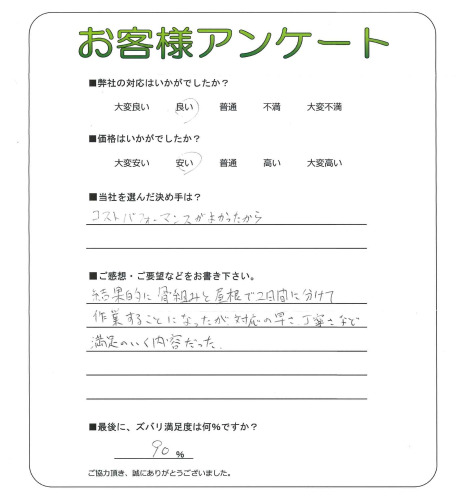 お客様アンケート
■弊社の対応はいかがでしたか?
大変良い 良い 普通 不満 大変不満
■価格はいかがでしたか?
大変安い 安い 普通 高い 大変高い
■当社を選んだ決め手は?
コストパフォーマンスがよかったから
■ご感想・ご要望などをお書き下さい。
結果的に骨組みと屋根で2日間に分けて
作業することになったが対応の早さ丁寧さなど
満足のいく内容だった.
■最後に、ズバリ満足度は何%ですか?
90 %
ご協力頂き、誠にありがとうございました。